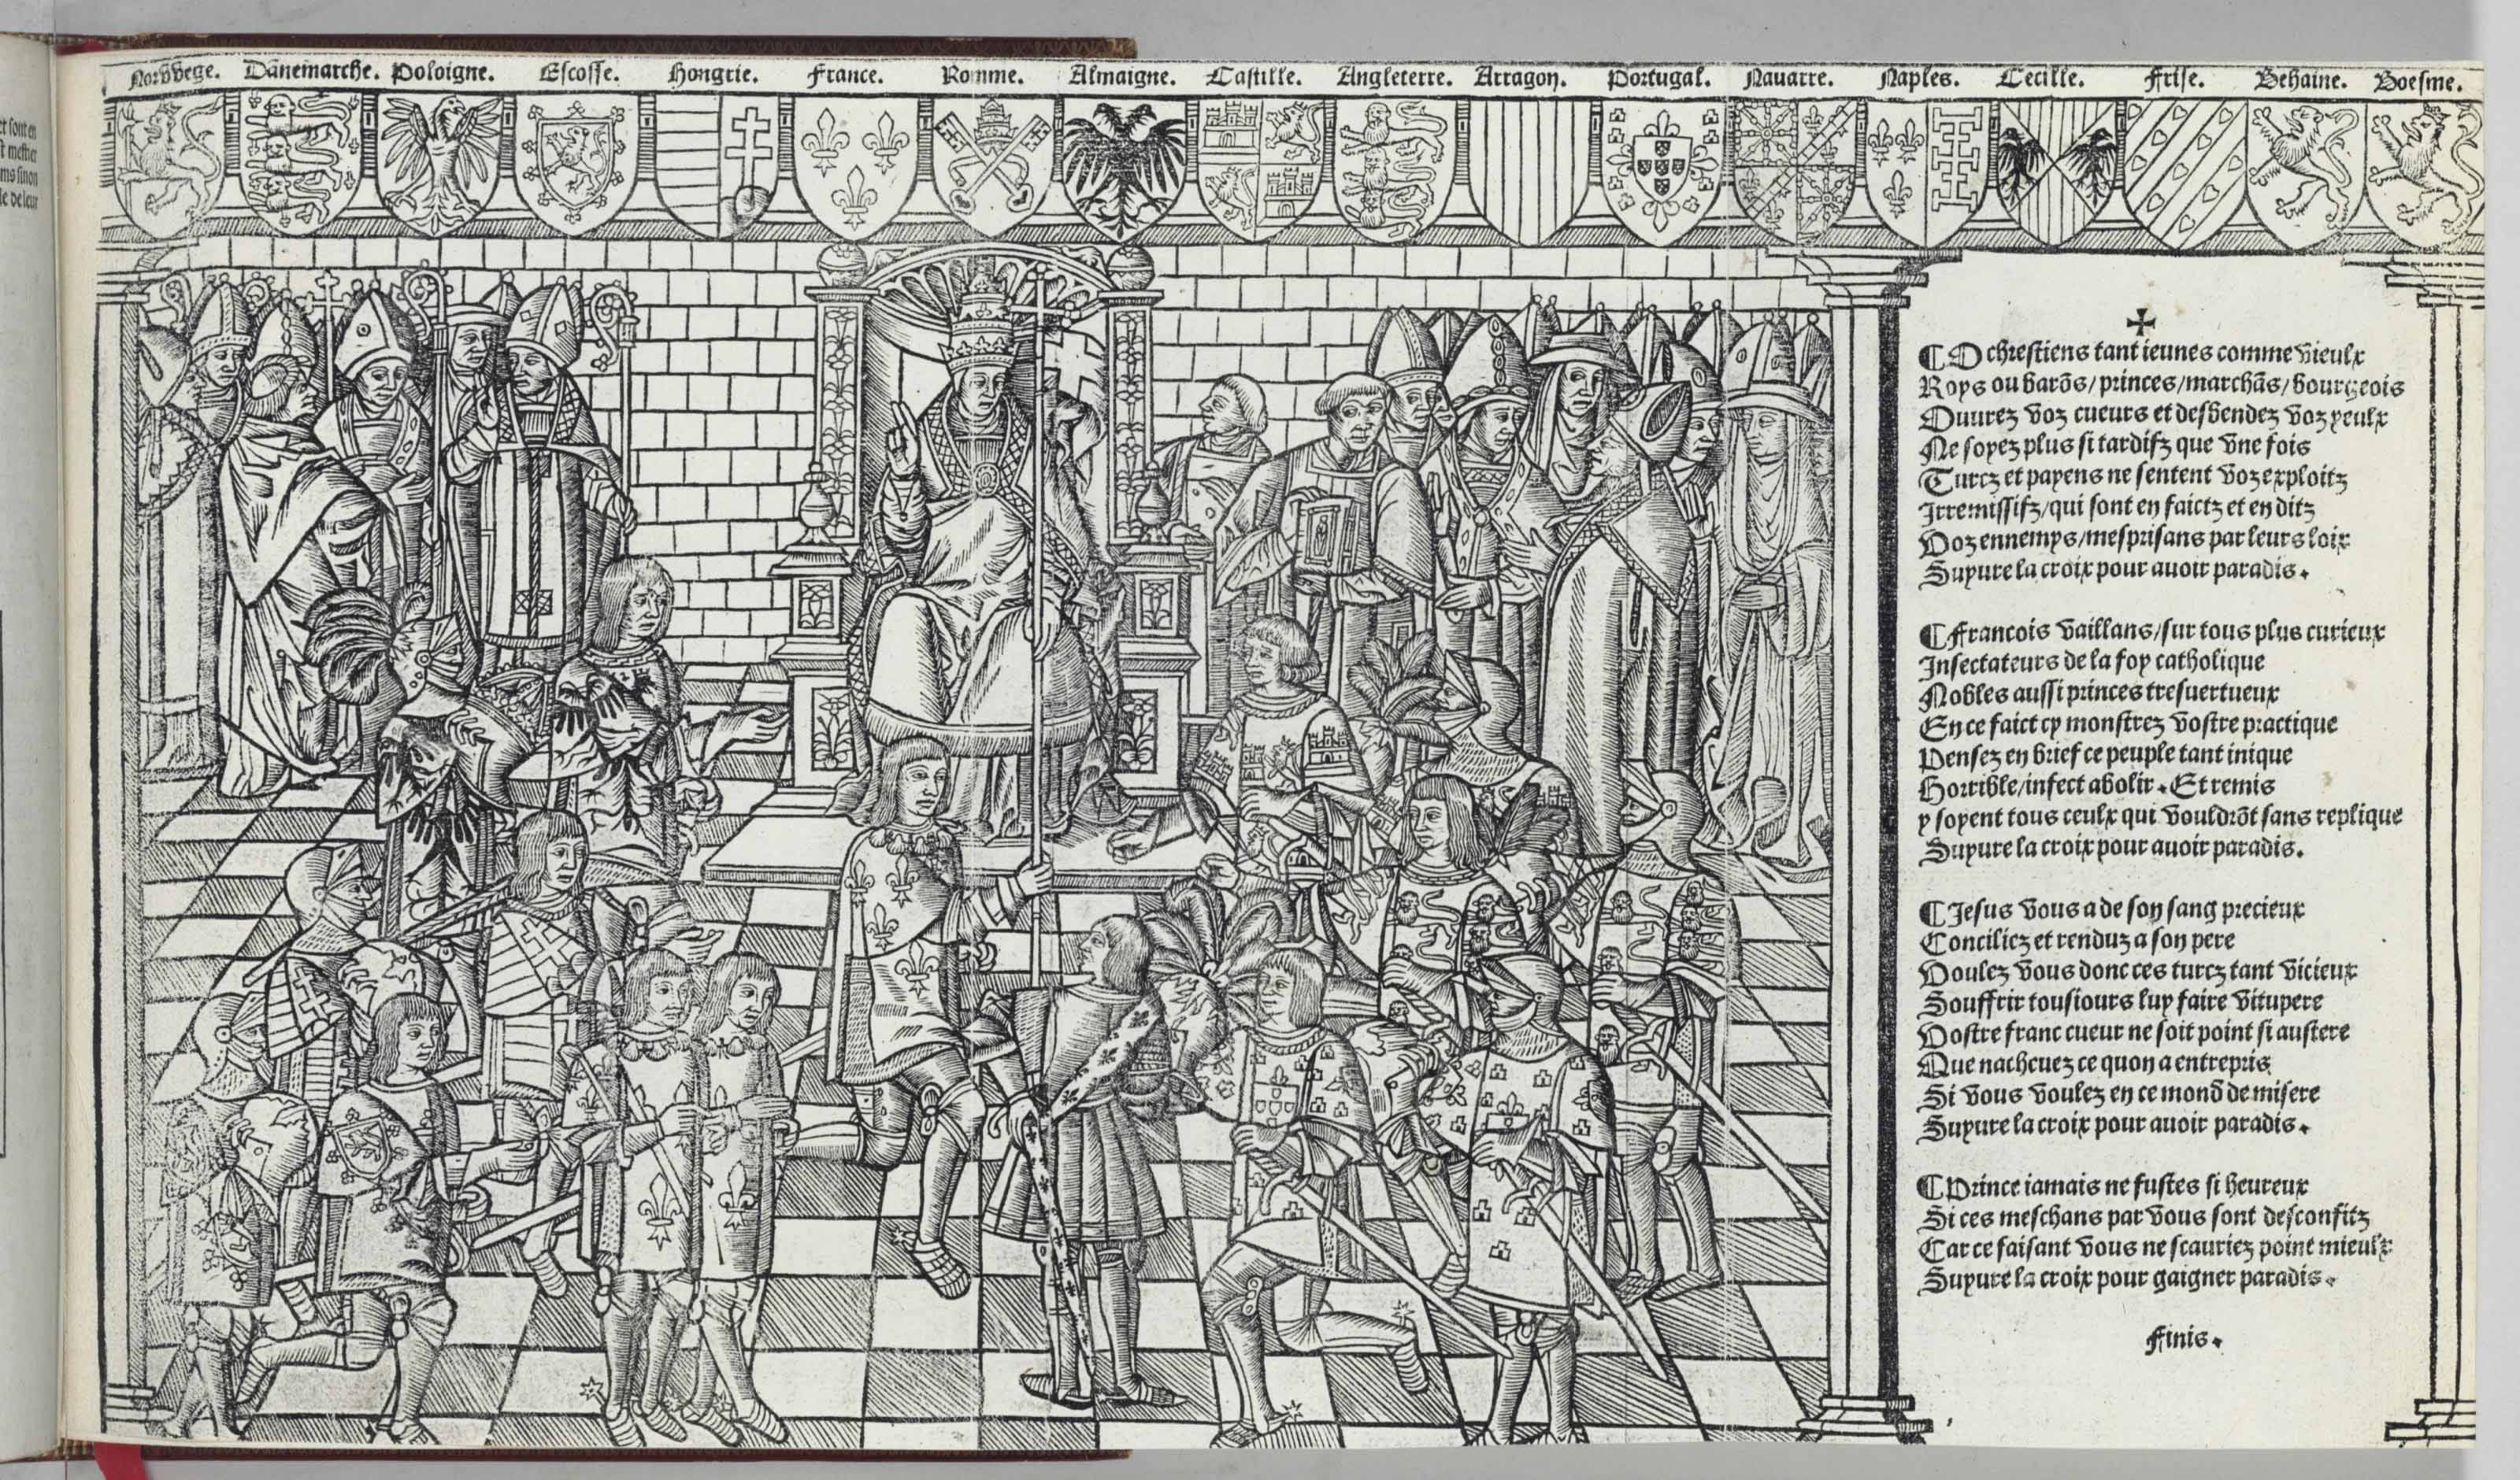 Norvvege. Dãnemarche. Poloigne. Escosse. Hongrie. France. Romme. Almaigne. Castille. Angleterre. Arragon. Portugal. Nauarre. Naples. Cecille. Frise. Behaine. Boesme.
et sont en
st mestier
ms sinon
le de leur
¶ O chrestiens tant ieunes comme vieulx
Roys ou barõs/princes/marchãs/bourgeois
Ouurez voz cueurs et desbendez voz yeulx
Ne soyez plus si tardifz que vne fois
Turcz et payens ne sentent voz exploitz
Irremissifz/qui sont en faictz et en ditz
Voz ennemys/mesprisans par leurs loix
Suyure la croix pour auoir paradis.
¶ Francois vaillans/sur tous plus curieux
Insectateurs de la foy catholique
Nobles aussi princes tresuertueux
En ce faict cy monstrez vostre practique
Pensez en brief ce peuple tant inique
Horrible/infect abolir. Et remis
y soyent tous ceulx qui vouldrõt sans replique
Suyure la croix pour auoir paradis.
¶ Jesus vous a de son sang precieux
Conciliez et renduz a son pere
Voulez vous donc ces turcz tant vicieux
Souffrir tousiours luy faire vitupere
Vostre franc cueur ne soit point si austere
Que nacheuez ce quon a entrepris
Si vous voulez en ce mond de misere
Suyure la croix pour auoir paradis.
¶ Prince iamais ne fustes si heureux
Si ces meschans par vous sont desconfitz
Car ce faisant vous ne scauriez point mieulx
Suyure la croix pour gaigner paradis.
Finis.